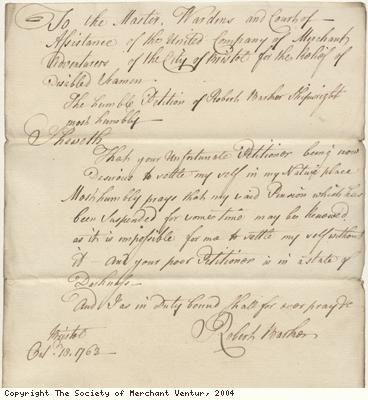 To the Master, Wardens and Court of
Assistance of the United Company of Merchant
Adventurers of the City of Bristol for the Relief of
Disabled Seamen.
The humble Petition of Robert Barker Shipwright
most humbly
Sheweth
That your Unfortunate Petitioner being now
Desirous to settle my self in my Native place
Most humbly prays that my said Pension which has
been Suspended for some time may be Renewed
as it is impossible for me to settle my self without
it and your poor Petitioner is in a state of
Darkness.
And I as in Duty bound shall for ever pray &c
Bristol
Octr. 18. 1763
Robert Barker
Copyright The Society of Merchant Ventur, 2004